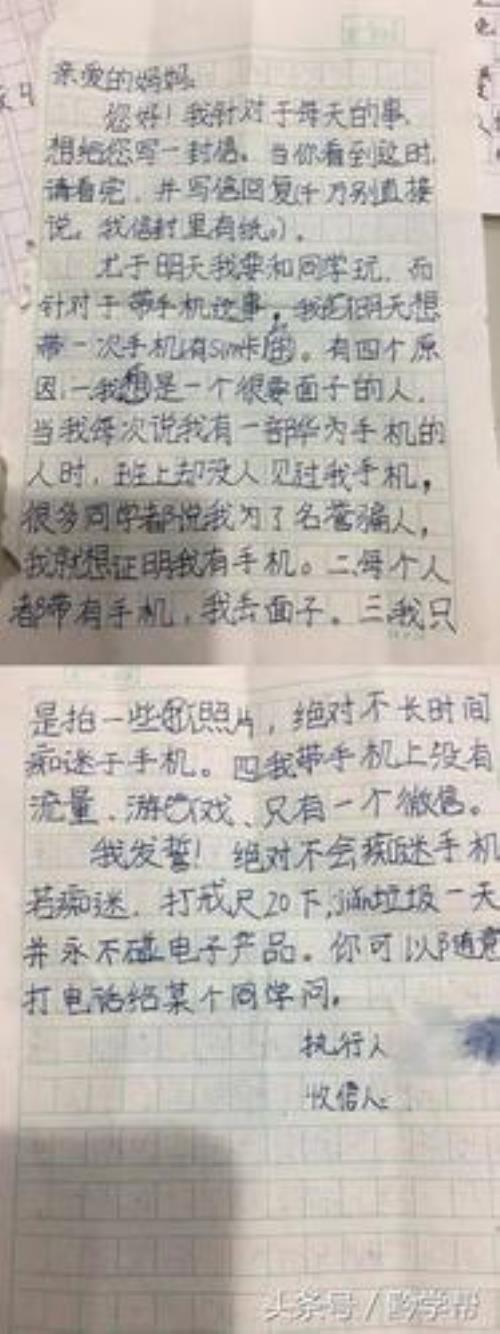 亲爱的妈妈:
您好!我针对于每天的事,
想给您写一封信。当你看到这时,
请看完,并写信回复(千万别直接
说,我信封里有纸。)。
尤于明天我要和同学玩,而
针对于带手机这事,我明天想
带一次手机(有Sim卡)。有四个原
因:一我是一个很要面子的人,
当我每次说我有一部华为手机的
人时,班上却没人见过我手机,
很多同学都说我为了名誉骗人,
我就想证明我有手机。二、每个人
都带有手机,我丢面子。三、我只
是拍一些照片,绝对不长时间
痴迷于手机。四我带手机上没有
流量、游戏、只有一个微信。
我发誓!绝对不会痴迷手机
若痴迷,打戒尺20下,jiǎn垃圾一天
并永不碰电子产品。你可以随意
打电话给某个同学问。
执行人
收信人:
头条号/黔学帮